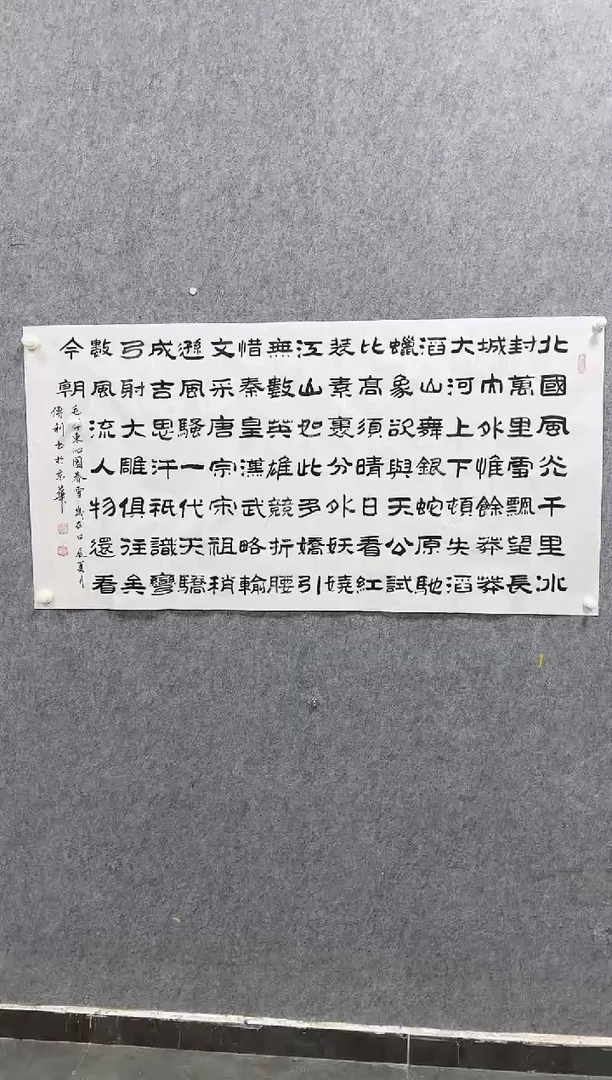 北國風光千里冰
封萬里雪飄望長
城內外惟餘莽莽
大河上下頓失滔
滔山舞銀蛇原馳
蠟象欲與天公試
比高須晴日看紅
裝素裹分外妖嬈
江山如此多嬌引
無數英雄競折腰
惜秦皇漢武略輸
文采唐宗宋祖稍
遜風騷一代天驕
成吉思汗祇識彎
弓射大雕俱往矣
數風流人物還看
今朝
毛澤東沁園春雪歲在甲辰夏月
利書於京華